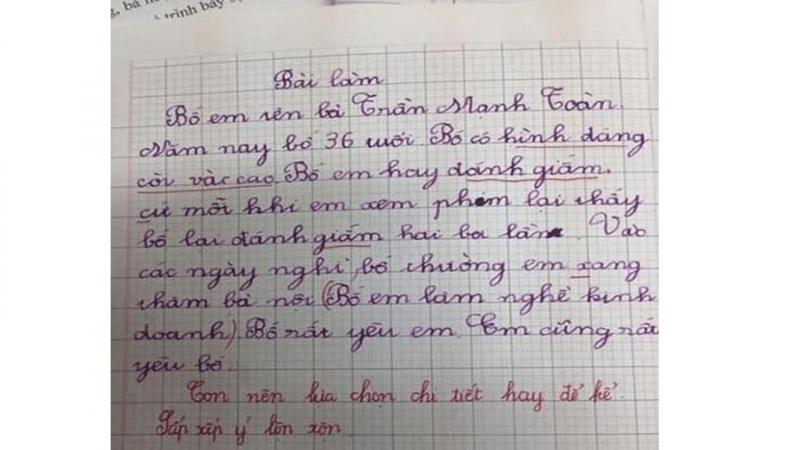 trình bày
Bài làm
Bố em tên là Trần Mạnh Toàn.
Năm nay bố 36 tuổi. Bố có hình dáng
còi và cao. Bố em hay đánh giấm.
cứ mỗi khi em xem phim lại thấy
bố lại đánh giấm hai ba lần. Vào
các ngày nghỉ, bố thường em xang
thăm bà nội (Bố em làm nghề kinh
doanh). Bố rất yêu em. Em cũng rất
yêu bố.
Con nên lựa chọn chi tiết hay để kể.
Sắp xếp ý lộn xộn.